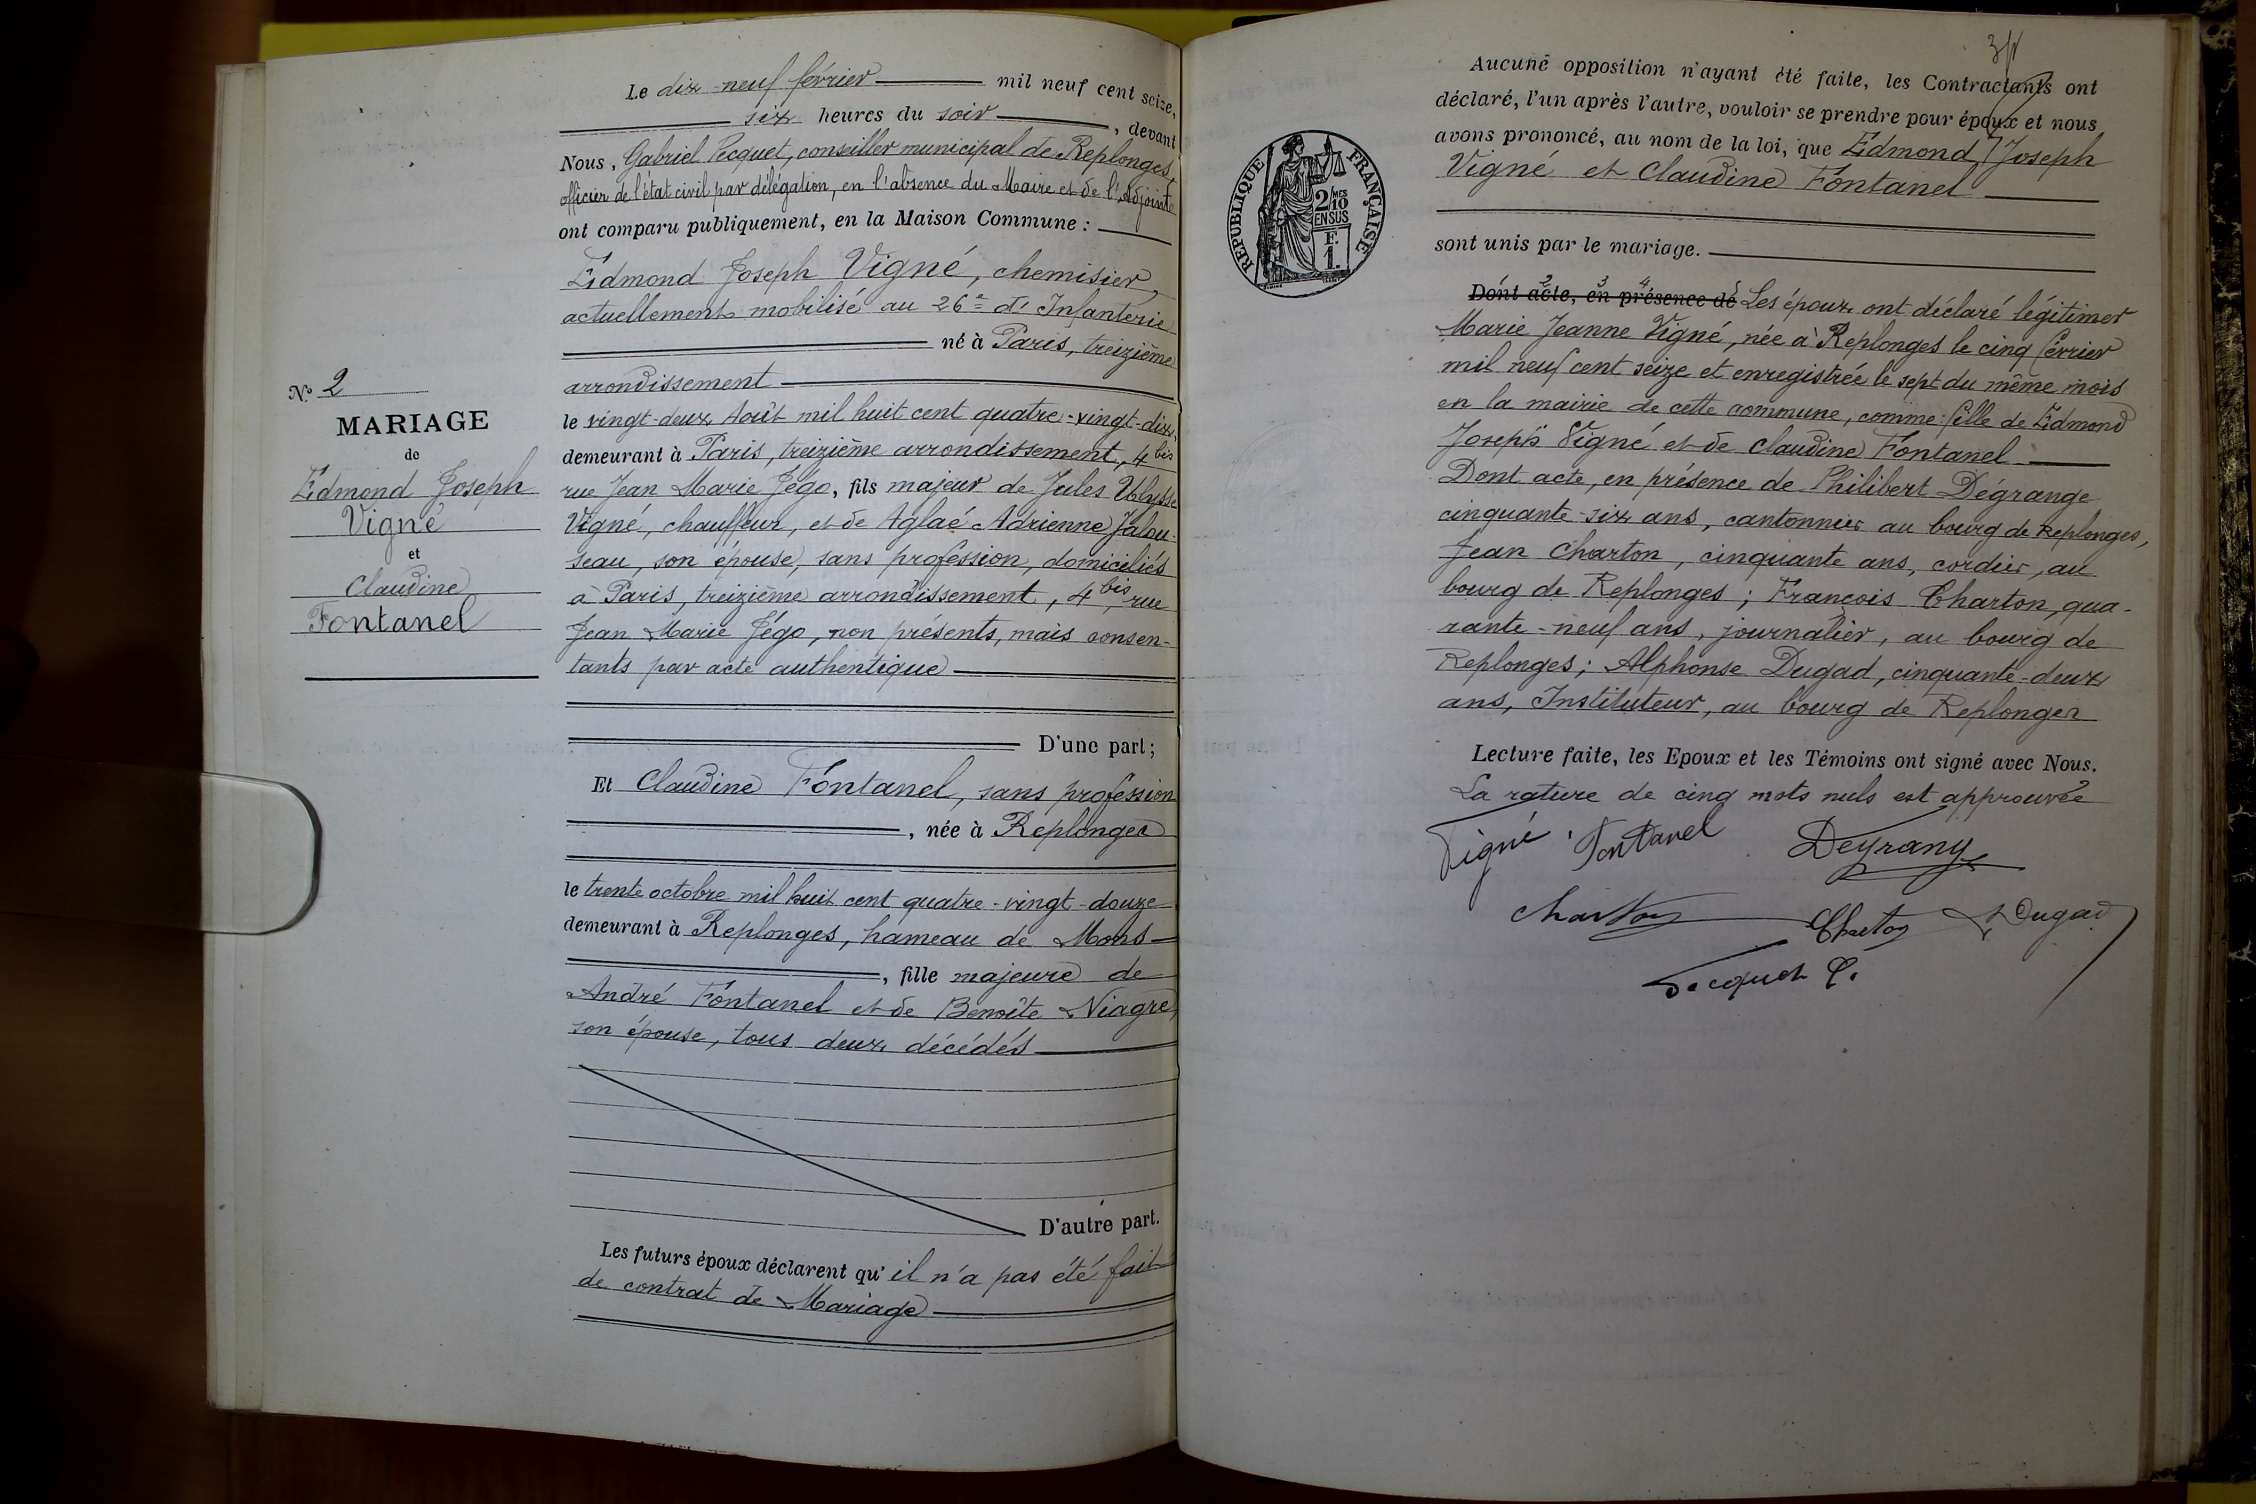 Le dix-neuf février mil neuf cent seize,
six heures du soir, devant
Nous, Gabriel Pecquet, conseiller municipal de Replonges,
officier de l'état civil par délégation, en l'absence du Maire et de l'Adjoint
ont comparu publiquement, en la Maison Commune :
Edmond Joseph Vigné, chemisier,
actuellement mobilisé au 26e d'Infanterie
né à Paris, treizième
arrondissement
le vingt-deux Août mil huit cent quatre-vingt-dix,
demeurant à Paris, treizième arrondissement, 4 bis
rue Jean Marie Jégo, fils majeur de Jules Ulysse
Vigné, chauffeur, et de Aglaé Adrienne Jalou-
seau, son épouse, sans profession, domiciliés
à Paris, treizième arrondissement, 4 bis, rue
Jean Marie Jégo, non présents, mais consen-
tants par acte authentique
D'une part;
Et Claudine Fontanel, sans profession
, née à Replonges
le trente octobre mil huit cent quatre-vingt-douze
demeurant à Replonges, hameau de Mons
, fille majeure de
André Fontanel et de Benoîte Niagre,
son épouse, tous deux décédés
D'autre part.
Les futurs époux déclarent qu'il n'a pas été fait
de contrat de Mariage
N° 2
MARIAGE
de
Edmond Joseph
Vigné
et
Claudine
Fontanel
Aucune opposition n'ayant été faite, les Contractants ont
déclaré, l'un après l'autre, vouloir se prendre pour époux et nous
avons prononcé, au nom de la loi, que Edmond Joseph
Vigné et Claudine Fontanel
sont unis par le mariage.
RÉPUBLIQUE FRANÇAISE
2/10
EN SUS
F.
1.
2 3 4 5
Dont acte, en présence de Les époux ont déclaré légitimer
Marie Jeanne Vigné, née à Replonges le cinq février
mil neuf cent seize et enregistrée le sept du même mois
en la mairie de cette commune, comme : fille de Edmond
Joseph Vigné et de Claudine Fontanel
Dont acte, en présence de Philibert Dégrange
cinquante-six ans, cantonnier au bourg de Replonges,
Jean Charton, cinquante ans, cordier, au
bourg de Replonges ; François Charton, qua-
rante-neuf ans, journalier, au bourg de
Replonges ; Alphonse Dugad, cinquante-deux
ans, Instituteur, au bourg de Replonges
Lecture faite, les Epoux et les Témoins ont signé avec Nous.
La rature de cinq mots nuls est approuvée
Vigné Fontanel Degrang
Charton Charton A Dugad
Pecquet G.